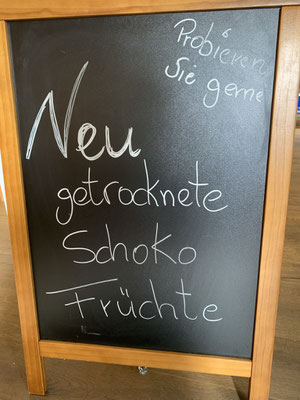 Probieren
Sie gerne
Neu
getrocknete
Schoko
Früchte